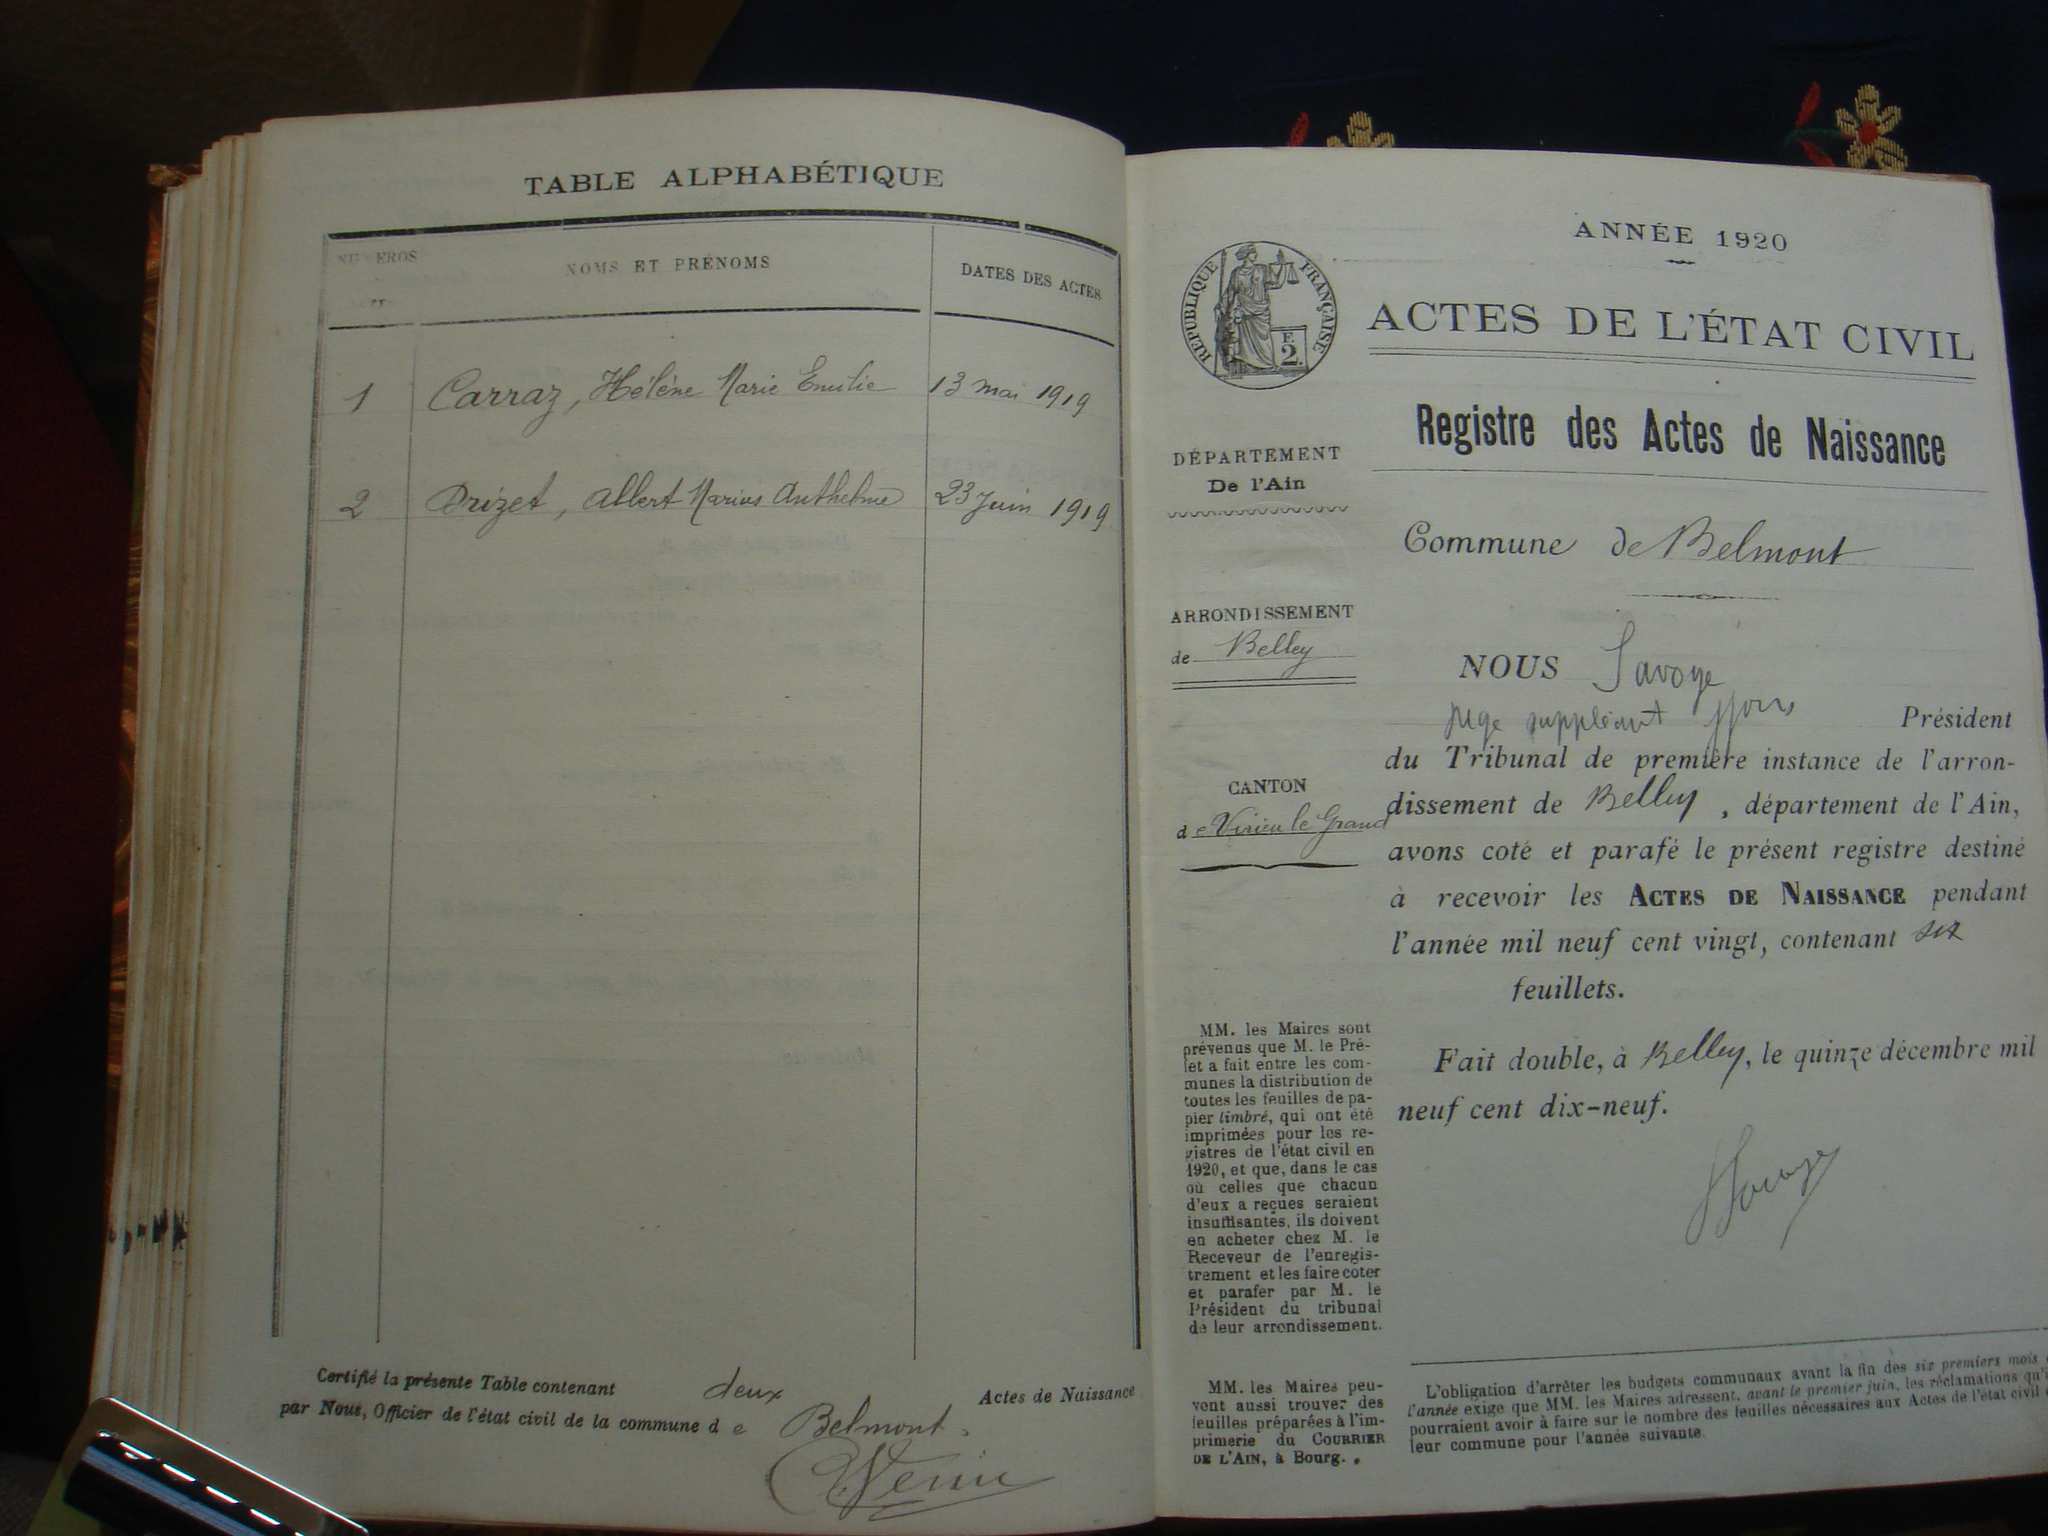 TABLE ALPHABÉTIQUE
NUMÉROS
NOMS ET PRÉNOMS
DATES DES ACTES
1 Carraz, Hélène Marie Emilie 13 mai 1919
2 Drizet, Albert Marius Anthelme 23 Juin 1919
Certifié la présente Table contenant deux Actes de Naissance
par Nous, Officier de l'état civil de la commune de Belmont.
ANNÉE 1920
RÉPUBLIQUE FRANÇAISE
E
2
ACTES DE L'ÉTAT CIVIL
Registre des Actes de Naissance
DÉPARTEMENT
De l'Ain
Commune de Belmont
ARRONDISSEMENT
de Belley
CANTON
de Virieu le Grand
NOUS Savoye
juge suppléant Président
du Tribunal de première instance de l'arron-
dissement de Belley, département de l'Ain,
avons coté et parafé le présent registre destiné
à recevoir les ACTES DE NAISSANCE pendant
l'année mil neuf cent vingt, contenant six
feuillets.
Fait double, à Belley, le quinze décembre mil
neuf cent dix-neuf.
Savoye
MM. les Maires sont
prévenus que M. le Pré-
fet a fait entre les com-
munes la distribution de
toutes les feuilles de pa-
pier timbré, qui ont été
imprimées pour les re-
gistres de l'état civil en
1920, et que, dans le cas
où celles que chacun
d'eux a reçues seraient
insuffisantes, ils doivent
en acheter chez M. le
Receveur de l'enregis-
trement et les faire coter
et parafer par M. le
Président du tribunal
de leur arrondissement.
MM. les Maires peu-
vent aussi trouver des
feuilles préparées à l'im-
primerie du COURRIER
DE L'AIN, à Bourg.
L'obligation d'arrêter les budgets communaux avant la fin des six premiers mois
l'année exige que MM. les Maires adressent, avant le premier juin, les réclamations qu'i
pourraient avoir à faire sur le nombre des feuilles nécessaires aux Actes de l'état civil
leur commune pour l'année suivante.